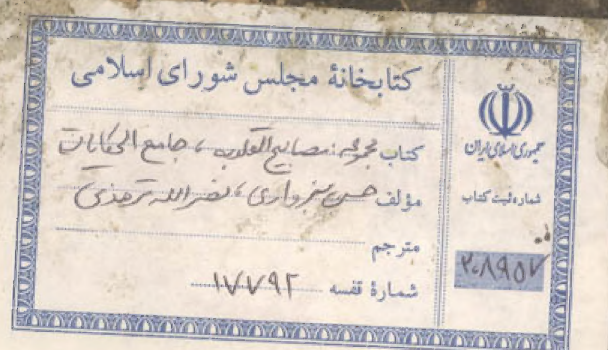 کتابخانهٔ مجلس شورای اسلامی
کتاب مجموعه: مصابیح القلوب، جامع الحکایات
مؤلف حسن سبزواری، نصرالله ترمذی
مترجم
شمارهٔ قفسه ۱۷۷۹۲
جمهوری اسلامی ایران
شماره ثبت کتاب
۲۰۸۹۵۷